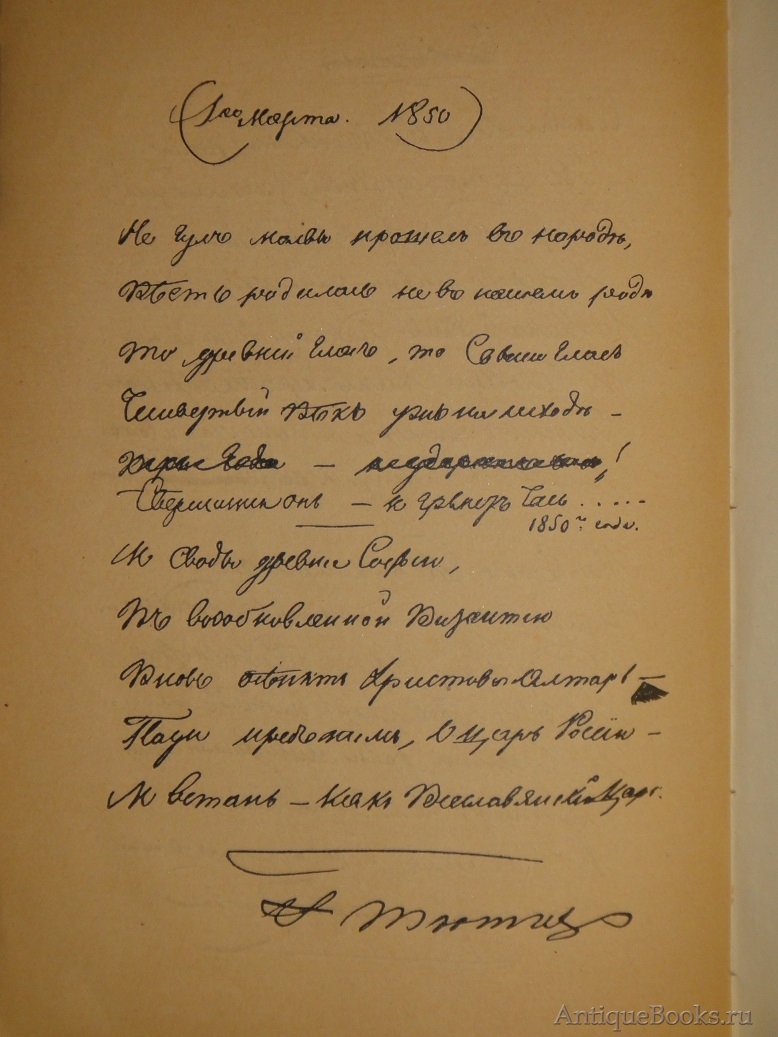 (1го Марта. 1850)
Не гулъ молвы прошелъ въ народѣ,
Вѣсть родилась не въ нашемъ родѣ
То древній гласъ, то Свыше гласъ
Четвертый вѣкъ ужъ на исходѣ –
Свершится онъ – и грянетъ Часъ . . . . .
1850го года.
И своды древніе Софіи,
Въ возобновленной Византіи
Вновь осѣнятъ Христовъ Олтарь! –
Пади предъ нимъ, о Царь Россіи –
И встань – какъ Всеславянскій Царь.
Ѳ Тютчевъ
AntiqueBooks.ru